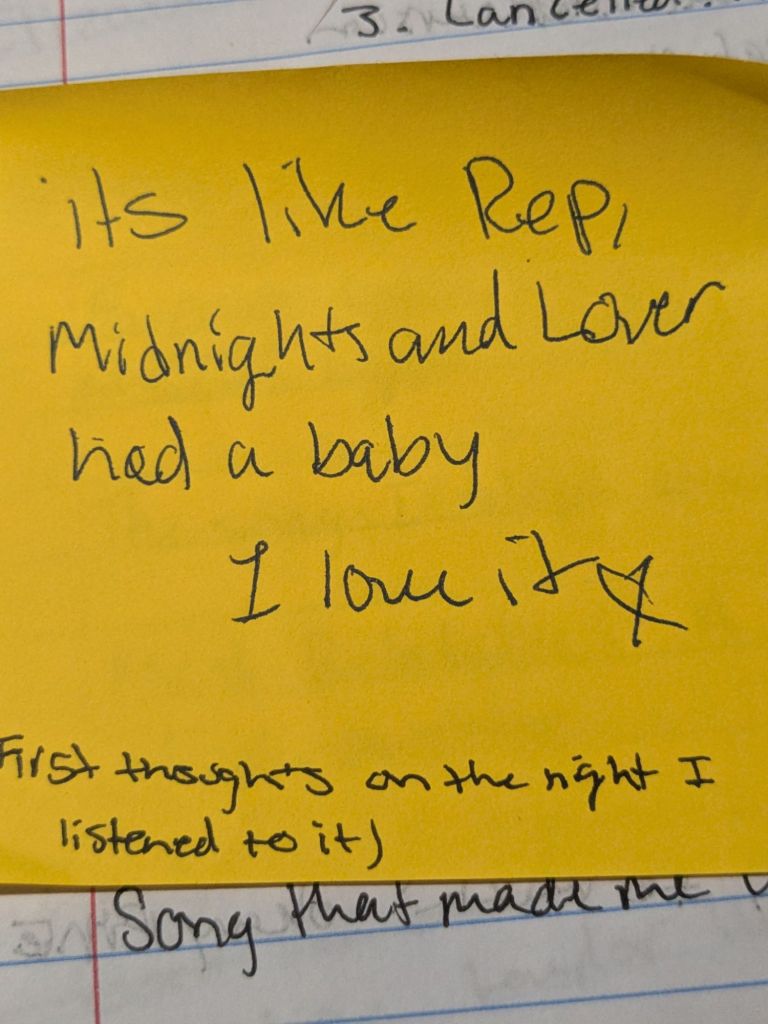 3. Cancelled
its like Rep,
Midnights and Lover
had a baby
I love it
First thoughts on the night I
listened to it)
Song that made me